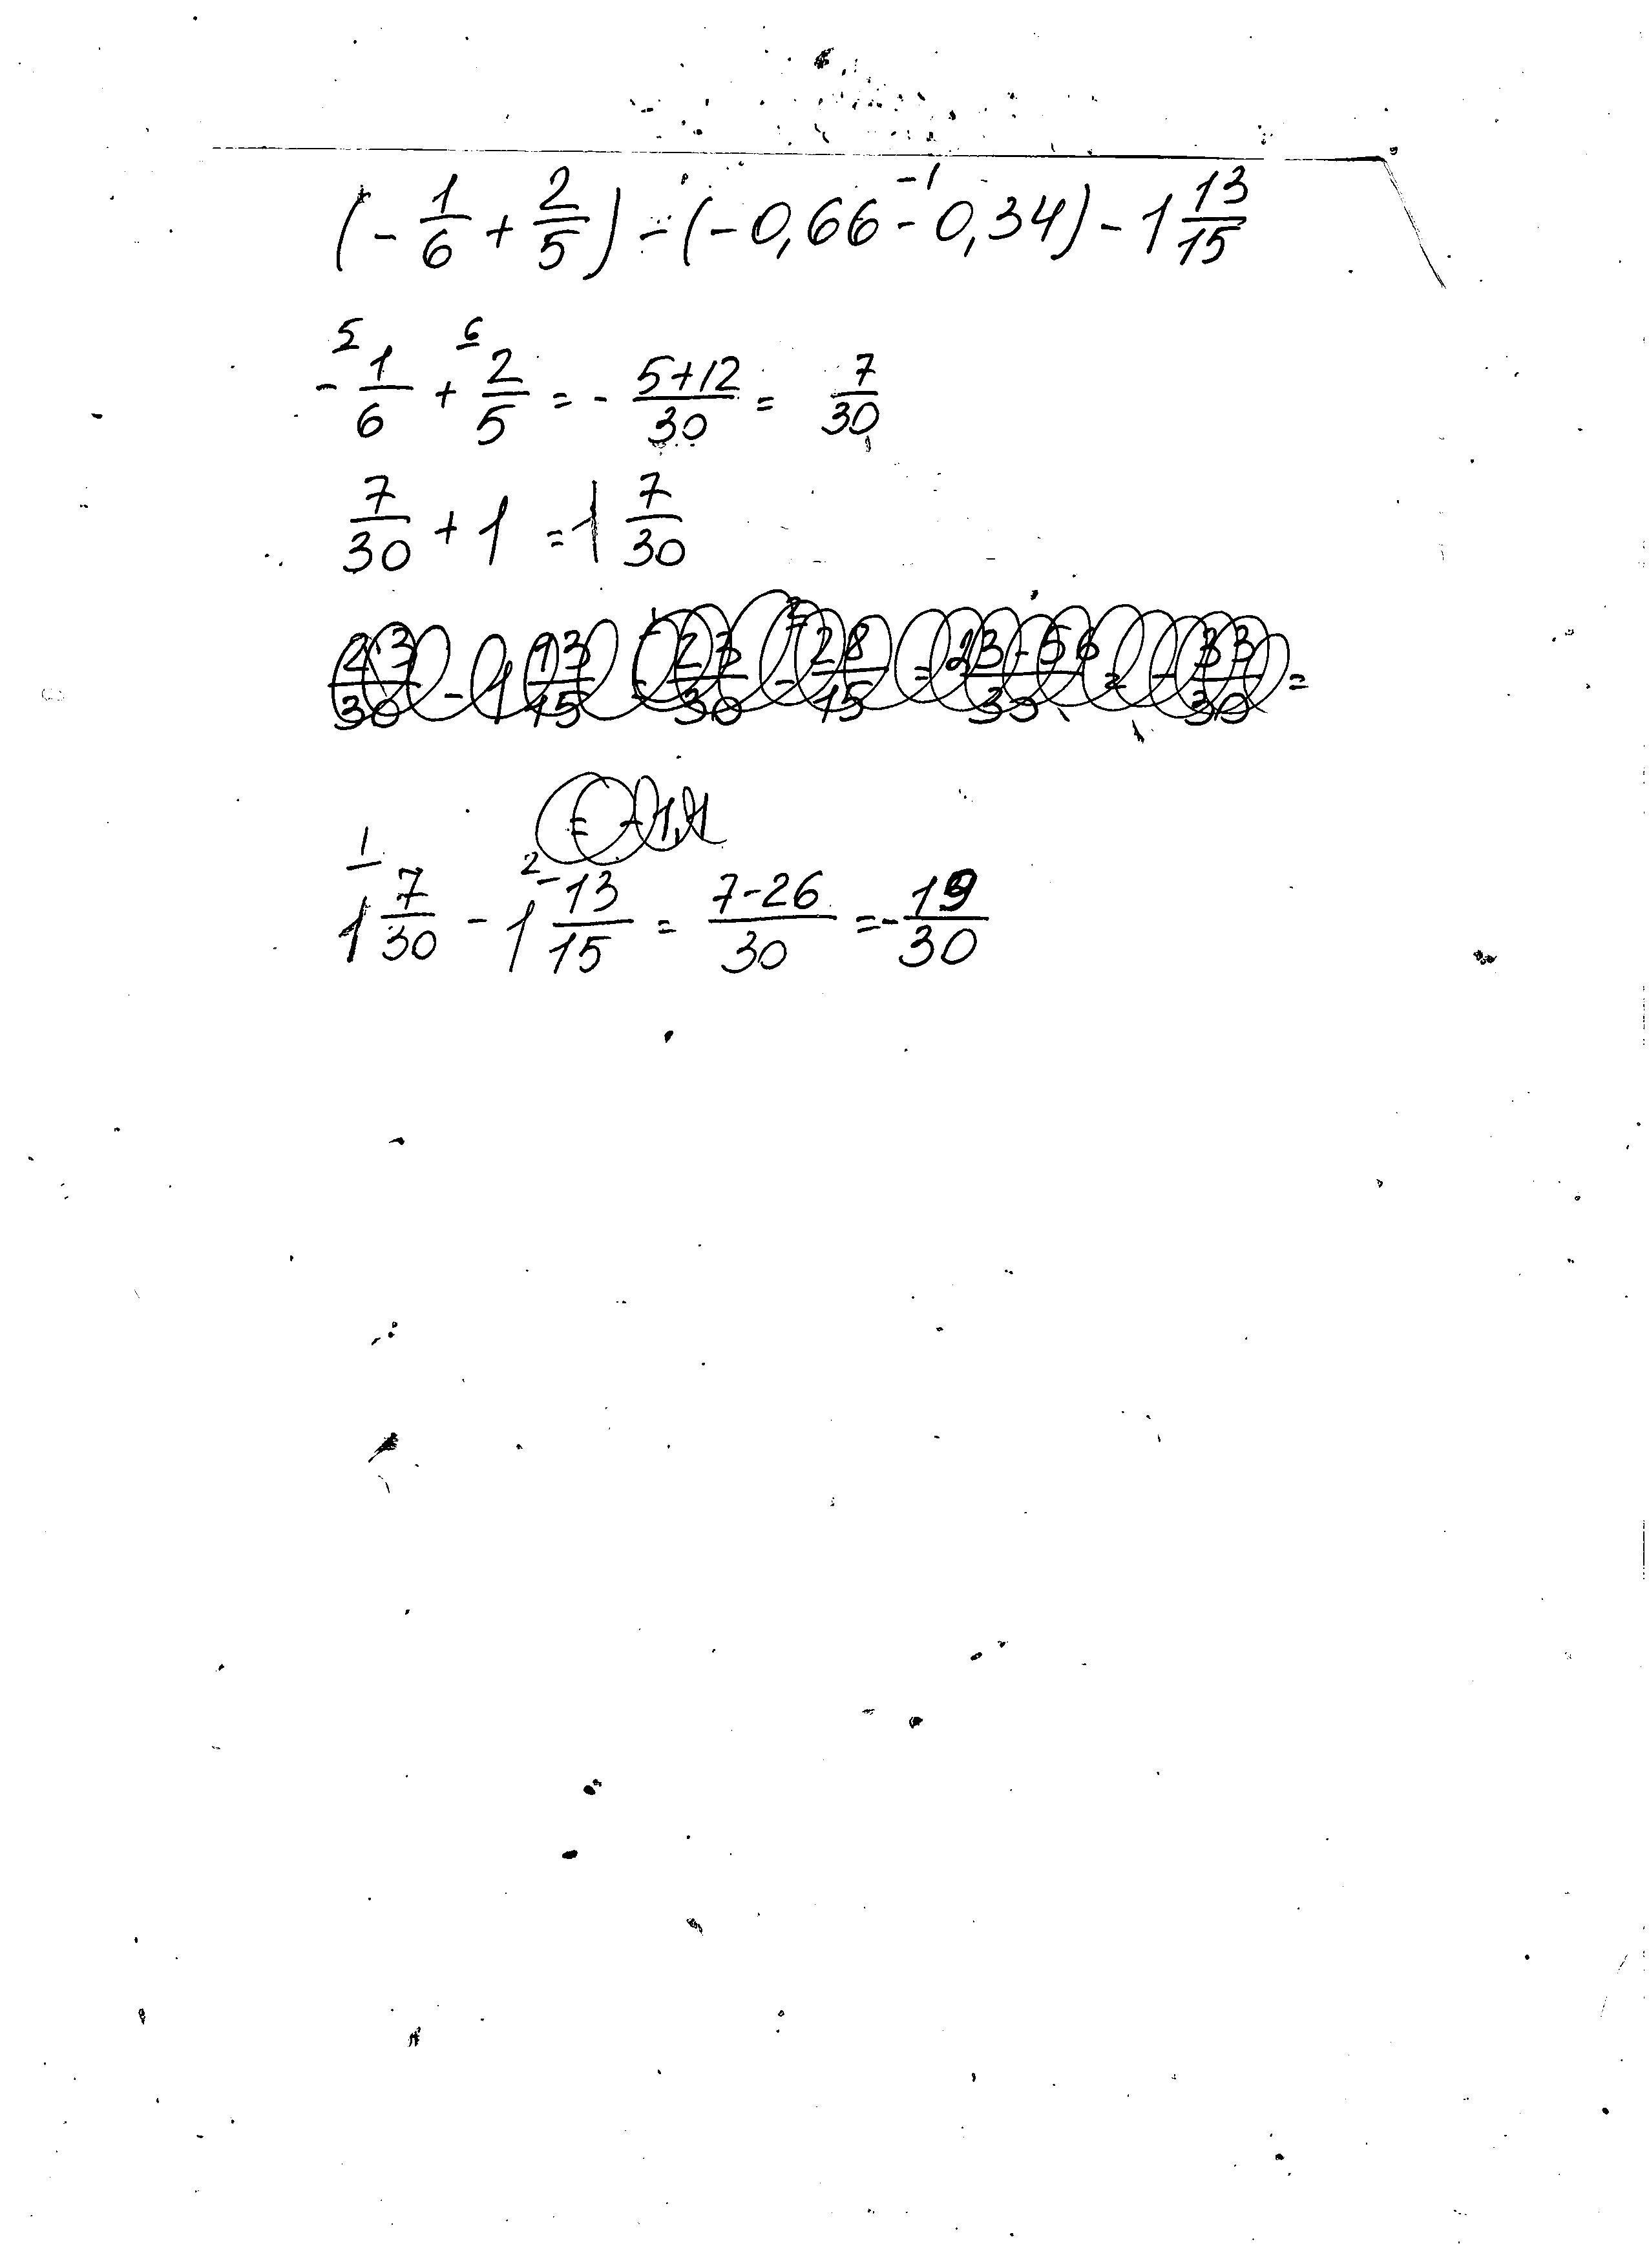 (-1/6 + 2/5) - (-0,66 - 0,34) - 1 13/15
-1
5 6
-1/6 + 2/5 = - 5+12/30 = 7/30
7/30 + 1 = 1 7/30
1 2
1 7/30 - 1 13/15 = 7-26/30 = - 19/30